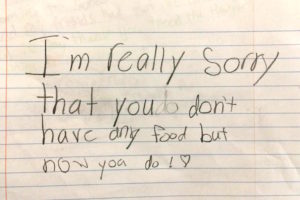 I'm really Sorry
that you don't
have any food but
now you do ! ♡